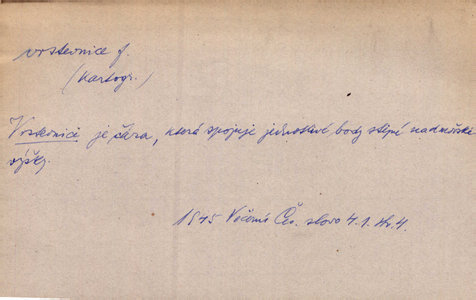 vrstevnice f.
(kartogr.)
Vrstevnice je čára, která spojuje jednotlivé body stejné nadmořské
výšky.
1945 Večerní Čes. slovo 4.1. str. 4.